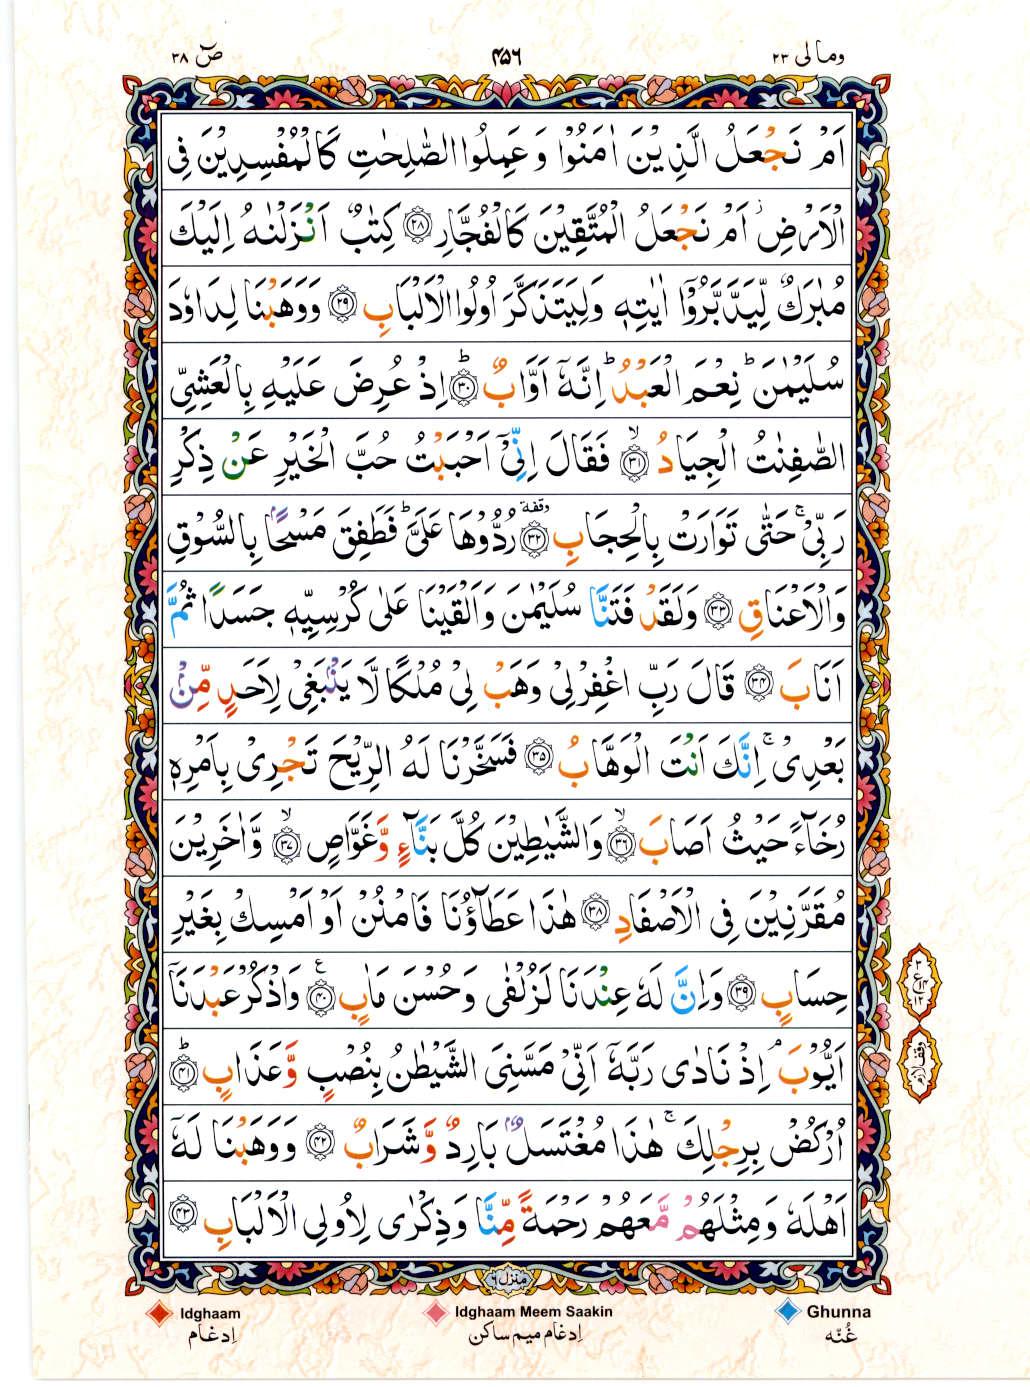 ومالی ۲۳ ۴۵۶ صٓ ۳۸
اَمْ نَجْعَلُ الَّذِیْنَ اٰمَنُوْا وَ عَمِلُوا الصّٰلِحٰتِ كَالْمُفْسِدِیْنَ فِی
الْاَرْضِ٘ اَمْ نَجْعَلُ الْمُتَّقِیْنَ كَالْفُجَّارِ ۝۲۸ كِتٰبٌ اَنْزَلْنٰهُ اِلَیْكَ
مُبٰرَكٌ لِّیَدَّبَّرُوْۤا اٰیٰتِهٖ وَلِیَتَذَكَّرَ اُولُوا الْاَلْبَابِ ۝۲۹ وَوَهَبْنَا لِدَاوٗدَ
سُلَیْمٰنَ ؕ نِعْمَ الْعَبْدُ ؕ اِنَّهٗۤ اَوَّابٌ ۝۳۰ؕ اِذْ عُرِضَ عَلَیْهِ بِالْعَشِیِّ
الصّٰفِنٰتُ الْجِیَادُ ۝۳۱ۙ فَقَالَ اِنِّیْۤ اَحْبَبْتُ حُبَّ الْخَیْرِ عَنْ ذِكْرِ
رَبِّیْ ۚ حَتّٰی تَوَارَتْ بِالْحِجَابِ ۝۳۲ وقفة رُدُّوْهَا عَلَیَّ ؕ فَطَفِقَ مَسْحًۢا بِالسُّوْقِ
وَالْاَعْنَاقِ ۝۳۳ وَلَقَدْ فَتَنَّا سُلَیْمٰنَ وَاَلْقَیْنَا عَلٰی كُرْسِیِّهٖ جَسَدًا ثُمَّ
اَنَابَ ۝۳۴ قَالَ رَبِّ اغْفِرْلِیْ وَهَبْ لِیْ مُلْكًا لَّا یَنْۢبَغِیْ لِاَحَدٍ مِّنْۢ
بَعْدِیْ ۚ اِنَّكَ اَنْتَ الْوَهَّابُ ۝۳۵ فَسَخَّرْنَا لَهُ الرِّیْحَ تَجْرِیْ بِاَمْرِهٖ
رُخَآءً حَیْثُ اَصَابَ ۝۳۶ۙ وَالشَّیٰطِیْنَ كُلَّ بَنَّآءٍ وَّغَوَّاصٍ ۝۳۷ۙ وَّاٰخَرِیْنَ
مُقَرَّنِیْنَ فِی الْاَصْفَادِ ۝۳۸ هٰذَا عَطَآؤُنَا فَامْنُنْ اَوْ اَمْسِكْ بِغَیْرِ
حِسَابٍ ۝۳۹ وَاِنَّ لَهٗ عِنْدَنَا لَزُلْفٰی وَحُسْنَ مَاٰبٍ ۝۴۰ ع وَاذْكُرْ عَبْدَنَاۤ
اَیُّوْبَ ۘ اِذْ نَادٰی رَبَّهٗۤ اَنِّیْ مَسَّنِیَ الشَّیْطٰنُ بِنُصْبٍ وَّعَذَابٍ ۝۴۱ؕ
اُرْكُضْ بِرِجْلِكَ ۚ هٰذَا مُغْتَسَلٌۢ بَارِدٌ وَّشَرَابٌ ۝۴۲ وَوَهَبْنَا لَهٗۤ
اَهْلَهٗ وَمِثْلَهُمْ مَّعَهُمْ رَحْمَةً مِّنَّا وَذِكْرٰی لِاُولِی الْاَلْبَابِ ۝۴۳
وقف لازم
منزل ۶
Idghaam Idghaam Meem Saakin Ghunna
اِدغام اِدغام میم ساکن غُنّه